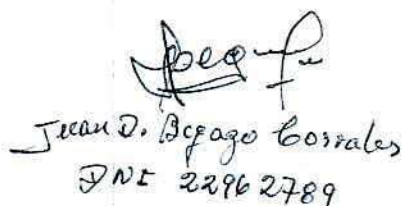 Juan D. Begazo Corrales
DNI 22962789